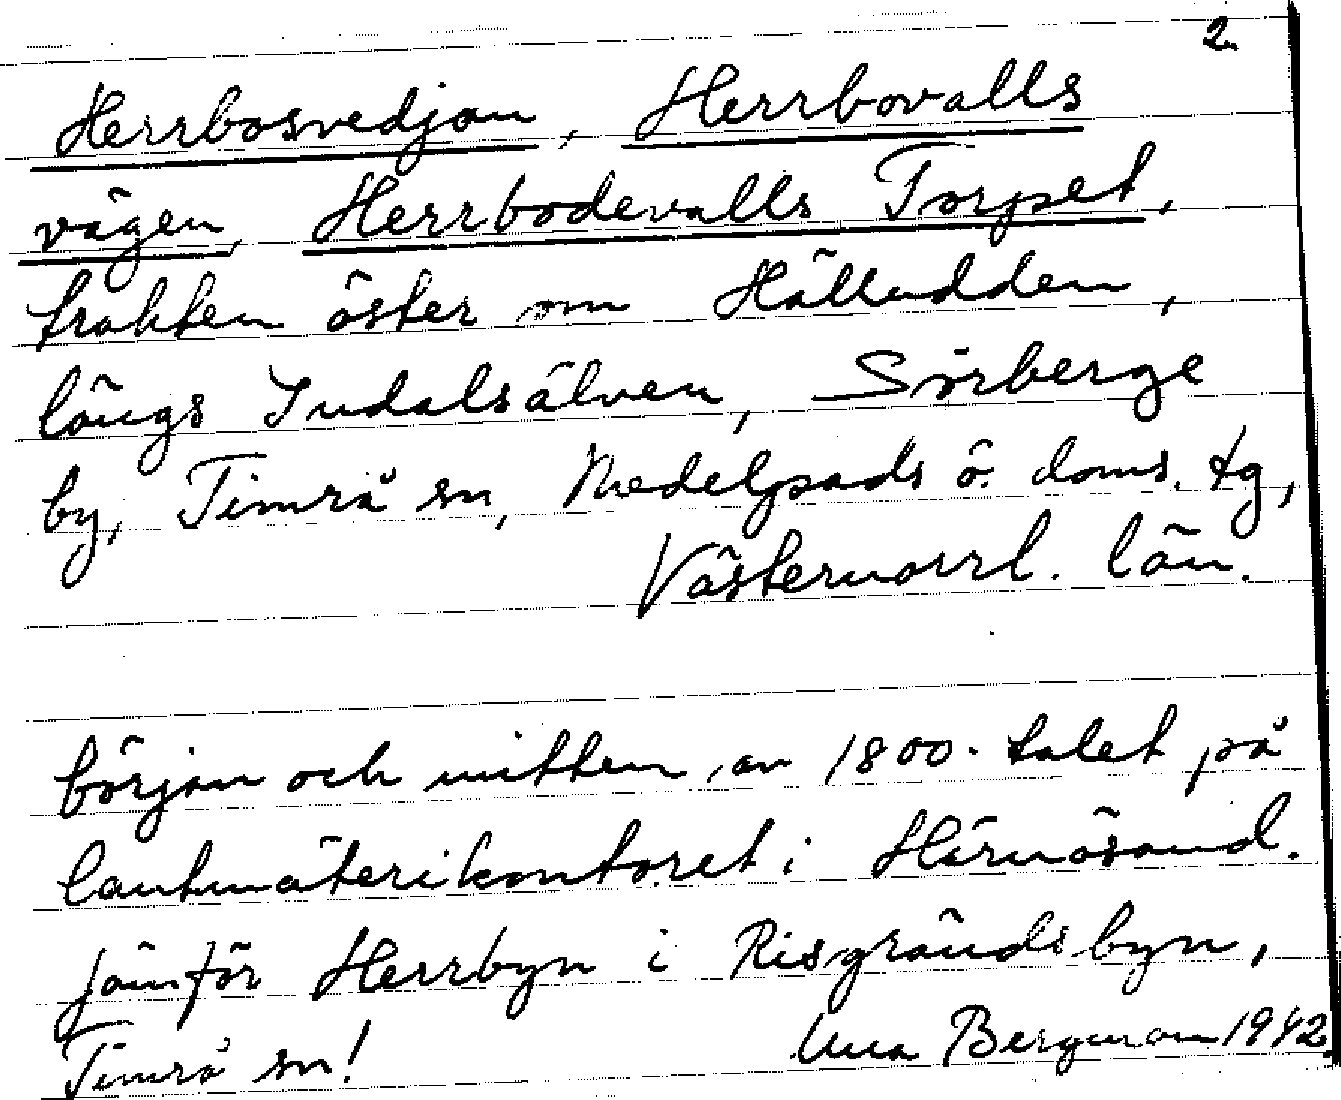 2.
Herrbosvedjan, Herrbovalls
vägen, Herrbodevalls Torpet,
trakten öster om Hälludden,
längs Indalsälven, Sörberge
by, Timrå sn, Medelpads ö. doms. tg,
Västernorrl. län.
början och mitten av 1800-talet på
lantmäterikontoret i Härnösand.
Jämför Herrbyn i Risgrändsbyn,
Timrå sn! Una Bergman 1942